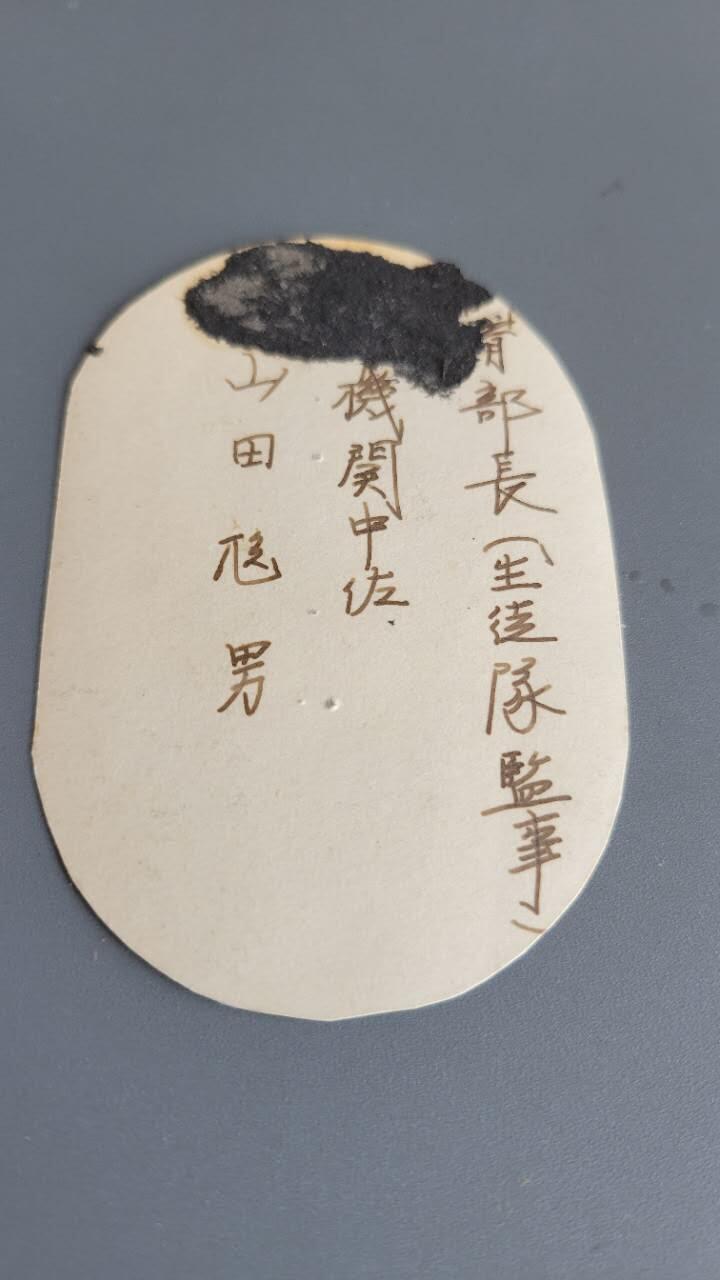 育部長(生徒隊監事)
機関中佐
山田 男